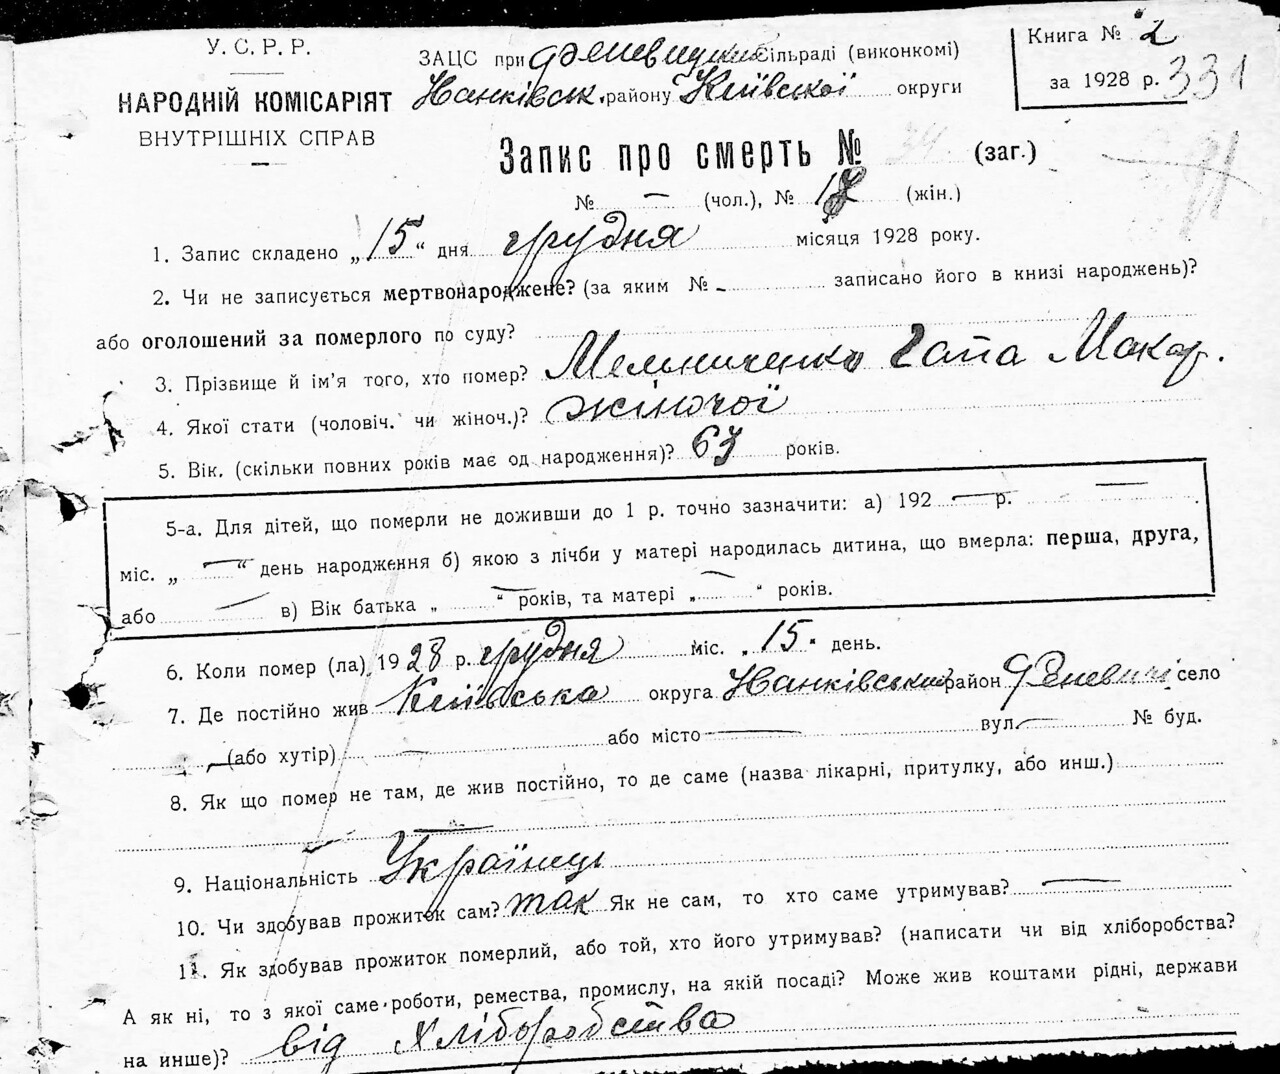 У. С. Р. Р.
НАРОДНІЙ КОМІСАРІЯТ
ВНУТРІШНІХ СПРАВ
ЗАЦС при сільраді (виконкомі)
району Київської округи
Книга № 2
за 1928 р. 331
Запис про смерть № 24 (заг.)
№ — (чол.), № (жін.)
1. Запис складено „15“ дня грудня місяця 1928 року.
2. Чи не записується мертвонароджене? (за яким № - записано його в книзі народжень)?
або оголошений за померлого по суду?
3. Прізвище й ім'я того, хто помер? Мельниченко Гапа Макар.
4. Якої стати (чоловіч. чи жіноч.)? жіночої
5. Вік. (скільки повних років має од народження)? 63 років.
5-а. Для дітей, що померли не доживши до 1 р. точно зазначити: а) 192 — р. —
міс. „ — “ день народження б) якою з лічби у матері народилась дитина, що вмерла: перша, друга,
або — в) Вік батька „ — “ років, та матері „ — “ років.
6. Коли помер (ла) 1928 р. грудня міс. „15“ день.
7. Де постійно жив Київська округа район село
(або хутір) — або місто — вул. — № буд.
8. Як що помер не там, де жив постійно, то де саме (назва лікарні, притулку, або инш.)
—
9. Національність Українець
10. Чи здобував прожиток сам? так Як не сам, то хто саме утримував? —
11. Як здобував прожиток померлий, або той, хто його утримував? (написати чи від хліборобства?
А як ні, то з якої саме роботи, ремества, промислу, на якій посаді? Може жив коштами рідні, держави
на инше)? від Хліборобства